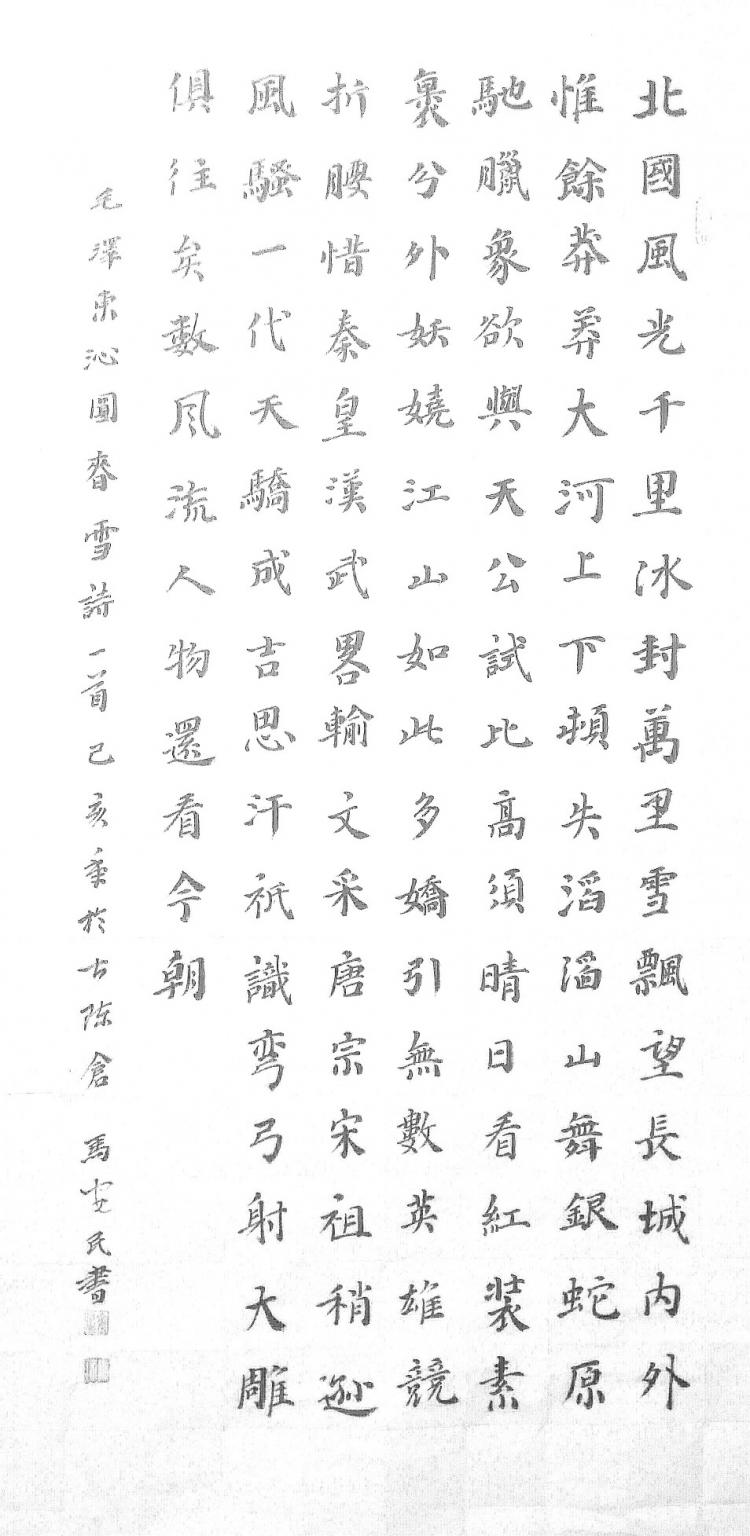 北國風光千里冰封萬里雪飄望長城內外
惟餘莽莽大河上下頓失滔滔山舞銀蛇原
馳臘象欲與天公試比高須晴日看紅裝素
裹兮外妖嬈江山如此多嬌引無數英雄競
折腰惜秦皇漢武畧輸文采唐宗宋祖稍遜
風騷一代天驕成吉思汗祇識弯弓射大雕
俱往矣數風流人物還看今朝
毛澤東沁園春雪詩一首己亥年於古陈倉 馬安民書